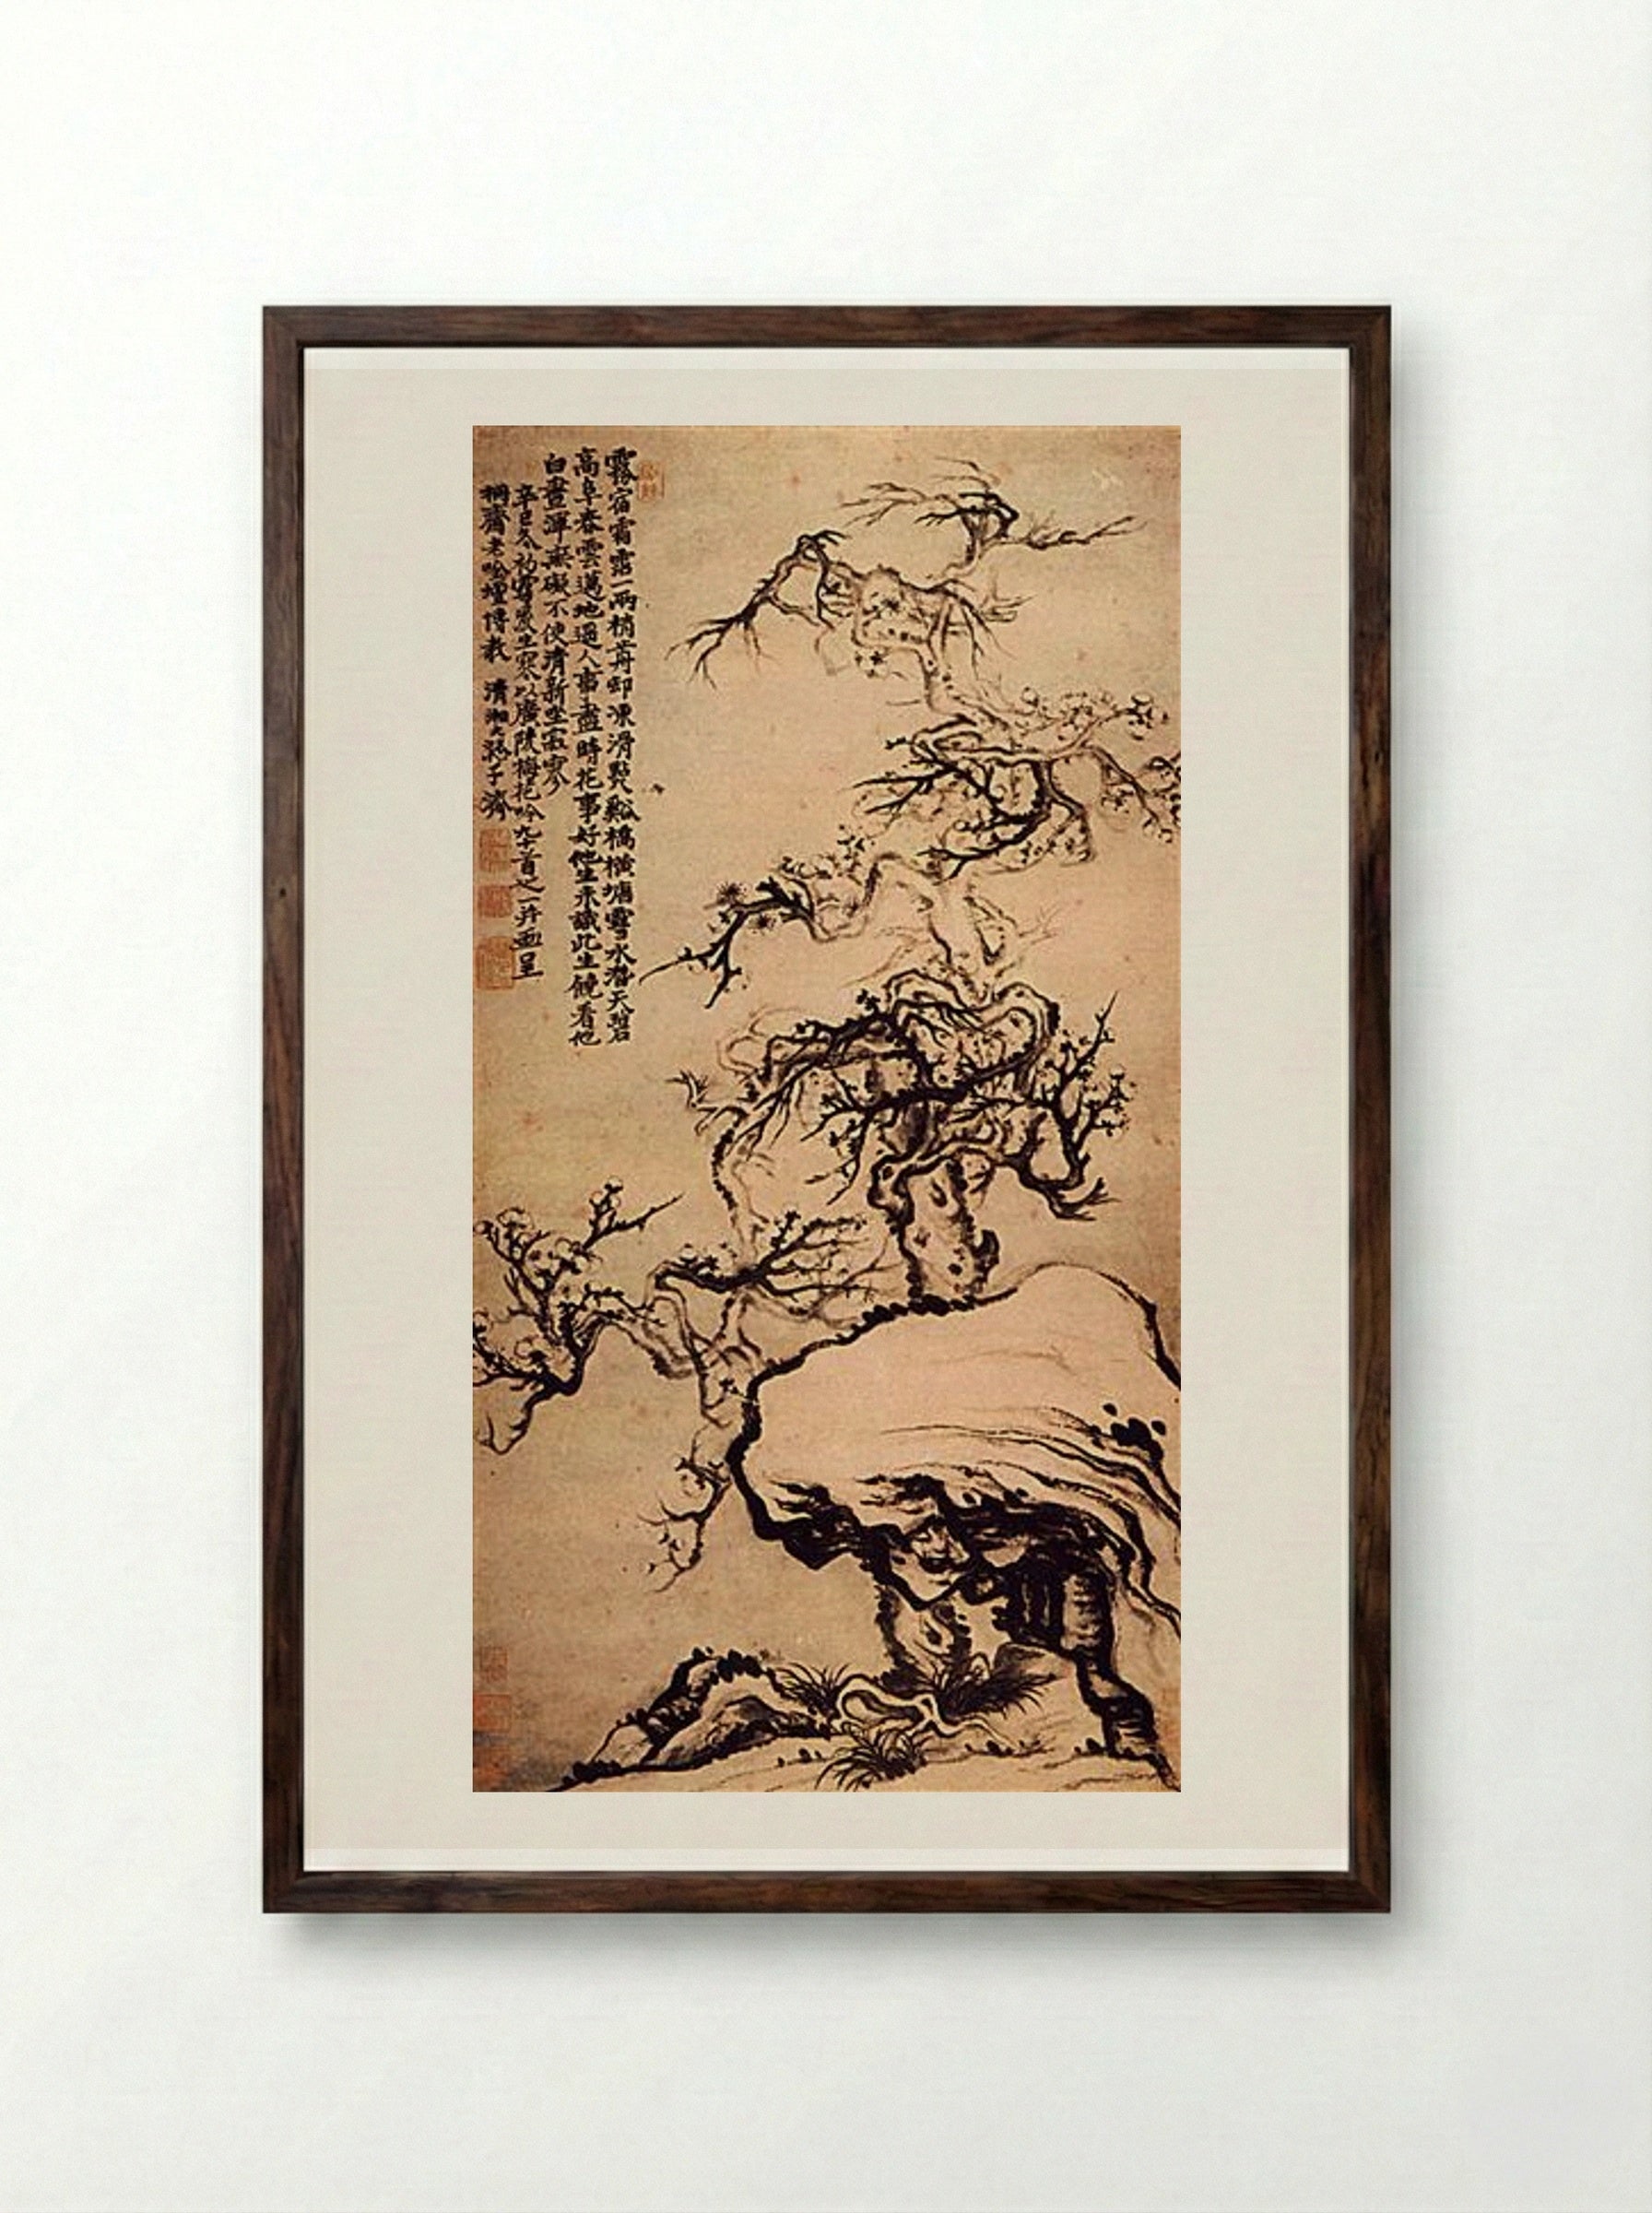 霧宿霜露一兩梢舟卸凍滑點谿橋橫塘雪水潛天碧
高阜春雲邁地遥人事盡時花事好他生未識此生饒看他
白晝渾無礙不使清新坐寂寥
辛巳冬初寒以廣陵梅花吟九首之一并畫呈
老吟壇博教 清湘大滌子濟